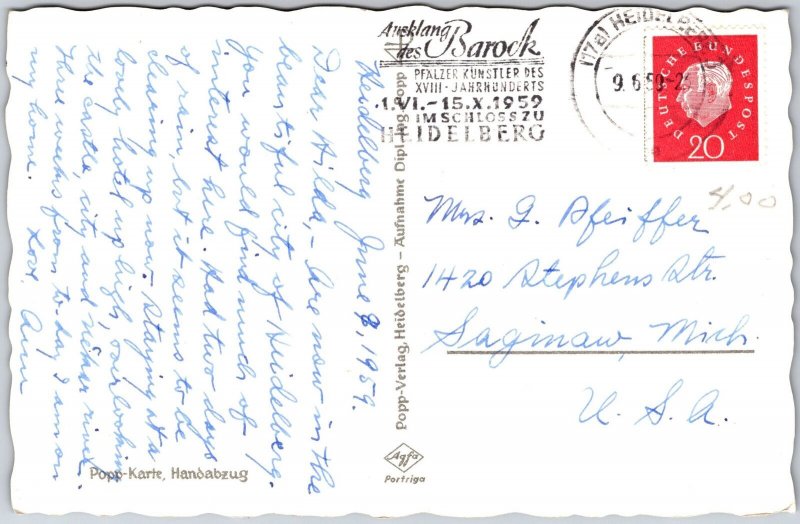 Heidelberg June 8, 1959.
Dear Hilda, - Are now in the
beautiful city of Heidelberg.
You would find much of
interest here. Had two days
of rain, but it seems to be
clearing up now. Staying at a
lovely hotel up high, overlooking
the castle, city and river.
Three weeks from to-day I am on
my home. Love. Ann
Popp-Karte, Handabzug
Popp-Verlag, Heidelberg - Aufnahme Dipl. Ing. Popp
Agfa
Portriga
Ausklang
des Barock
PFÄLZER KÜNSTLER DES
XVIII. JAHRHUNDERTS
1.VI.-15.X.1959
IM SCHLOSS ZU
HEIDELBERG
(17a) HEIDELBERG
9.6.59-2
DEUTSCHE BUNDESPOST
20
4.00
Mrs. G. Pfeiffer
1420 Stephens Str.
Saginaw, Mich.
U. S. A.